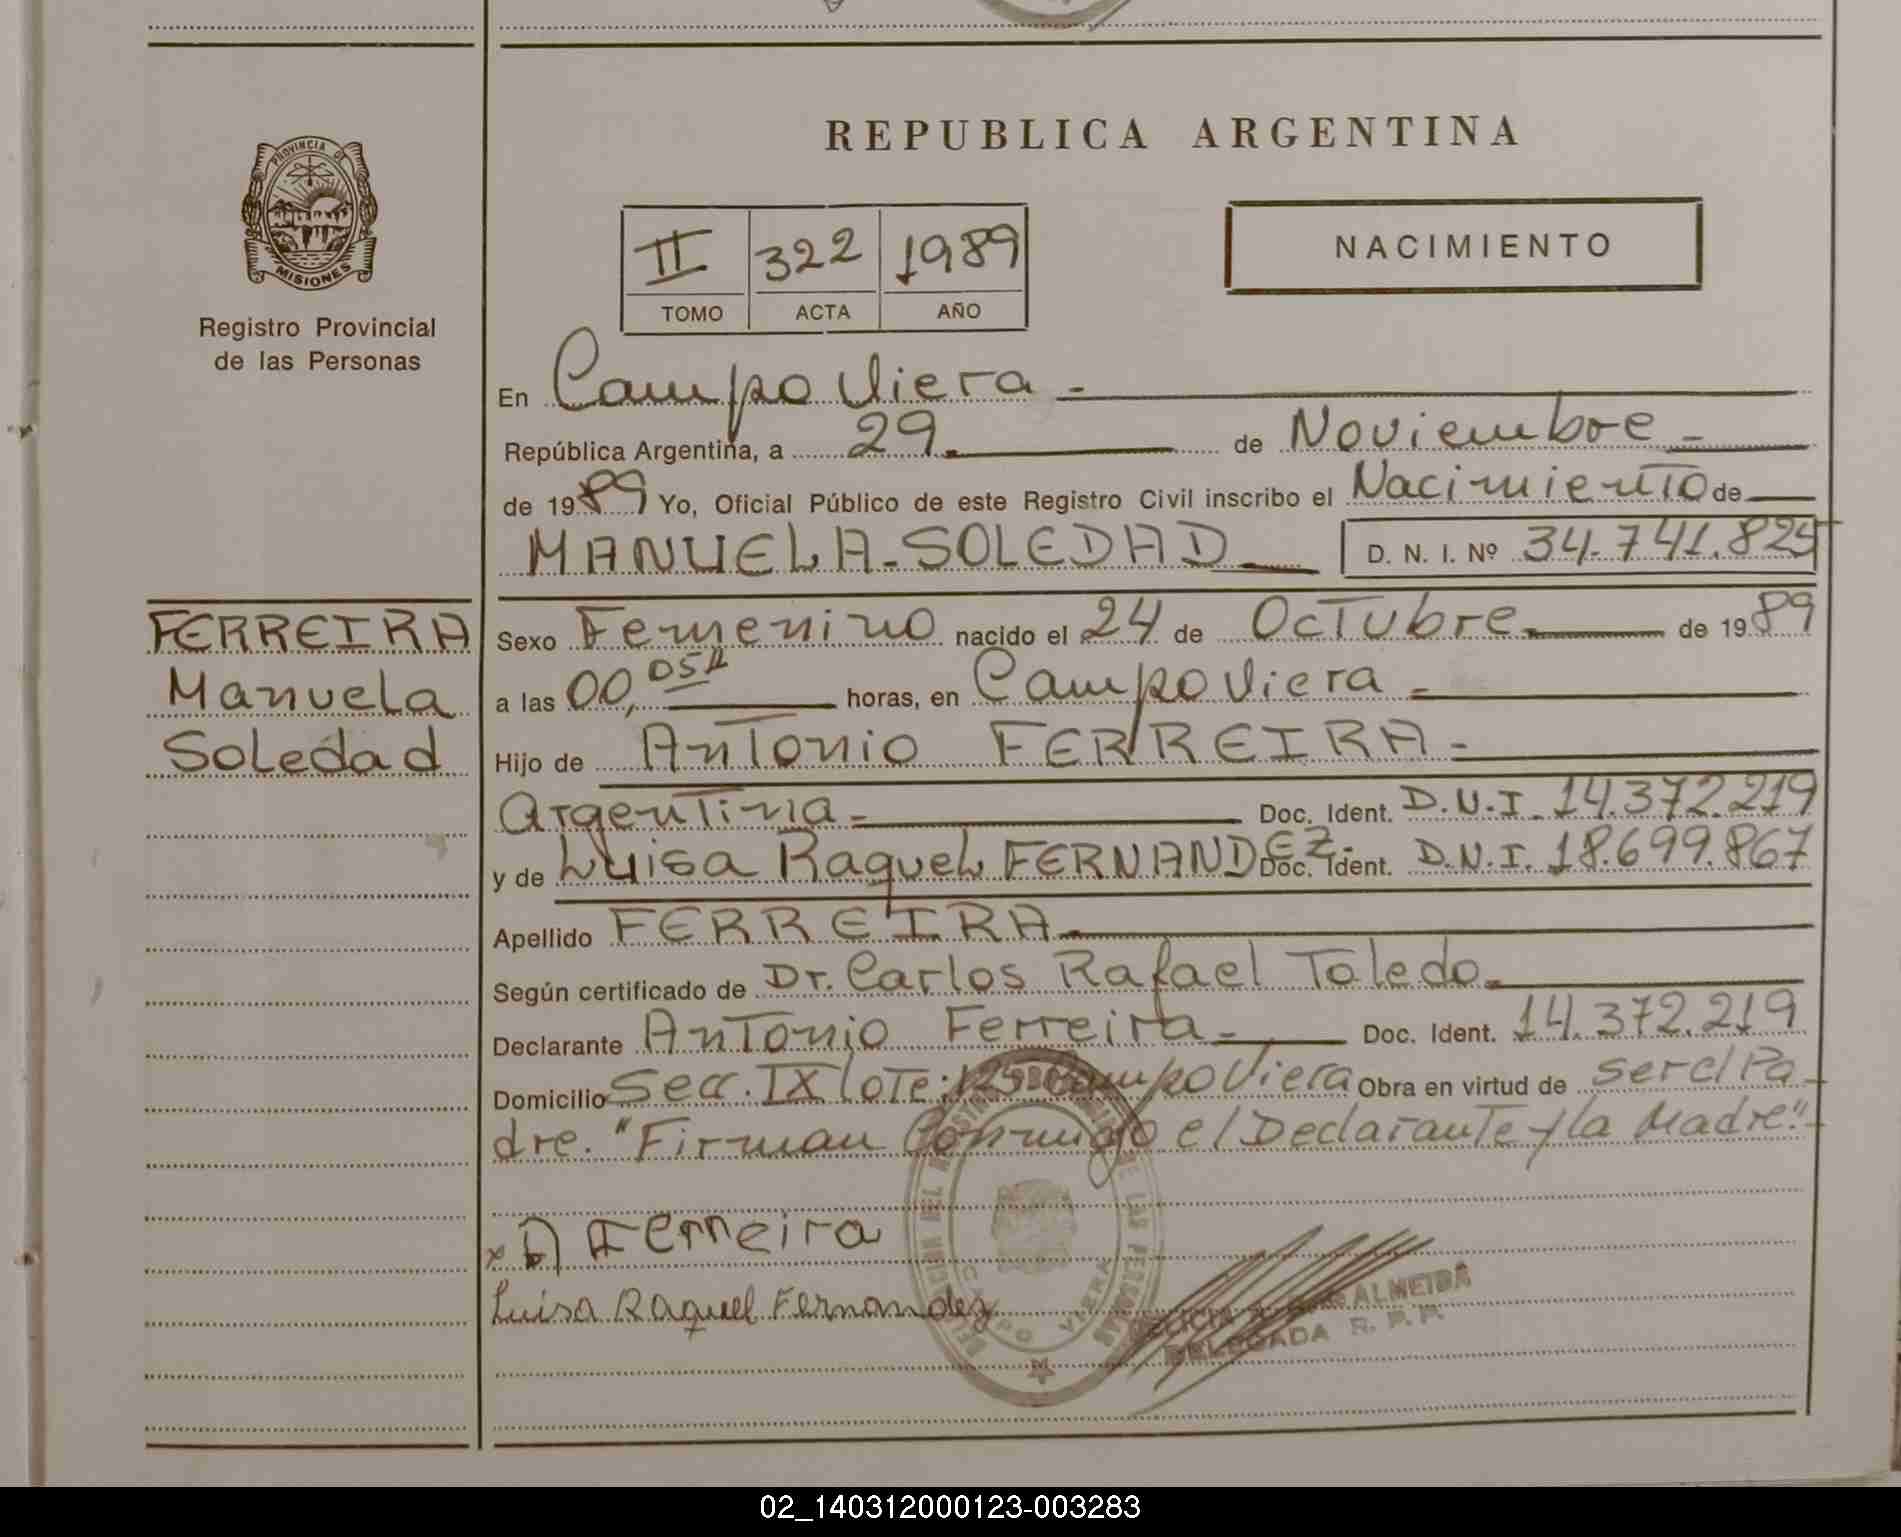 REPUBLICA ARGENTINA
PROVINCIA DE
MISIONES
Registro Provincial
de las Personas
II 322 1989
TOMO ACTA AÑO
NACIMIENTO
En Campo Viera -
República Argentina, a 29 de Noviembre -
de 1989 Yo, Oficial Público de este Registro Civil inscribo el Nacimiento de
MANUELA-SOLEDAD D. N. I. Nº 34.741.825
FERREIRA
Manuela
Soledad
Sexo Femenino nacido el 24 de Octubre de 1989
a las 00,05 horas, en Campo Viera -
Hijo de Antonio FERREIRA -
Argentina - Doc. Ident. D.N.I. 14.372.219
y de Luisa Raquel FERNANDEZ - Doc. Ident. D.N.I. 18.699.867
Apellido FERREIRA
Según certificado de Dr. Carlos Rafael Toledo
Declarante Antonio Ferreira - Doc. Ident. 14.372.219
Domicilio Secc. IX lote: 125 Campo Viera Obra en virtud de ser el Pa-
dre. "Firman Conmigo el Declarante y la Madre." -
x A Ferreira
Luisa Raquel Fernandez
CAMPO VIERA
ALMEIDA
DELEGADA R. P. P.
02_140312000123-003283